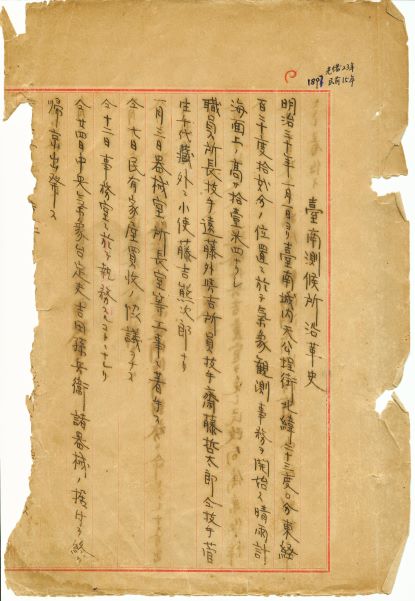 光緒23年
1897 民前15年
臺南測候所沿革史
明治三十年一月一日ヨリ臺南城内天公埕街北緯二十三度〇分東經
百二十度拾貳分ノ位置ニ於テ氣象觀測事務ヲ開始ス晴雨計
海面上ノ高サ拾壹米四ナリ
職員ハ所長技手遠藤外喜吉所員技手齋藤哲太郎仝技手菅
生千代藏外ニ小使藤吉熊次郎ナリ
一月三日器械室所長室等工事ニ着手ス
仝七日民有家屋買收ノ協議ヲナス
仝十二日事務室ニ於テ執務スルコトトナレリ
仝廿四日中央氣象台定夫吉田孫兵衛諸器械ノ据付ヲ終ヘ
帰京出發ス